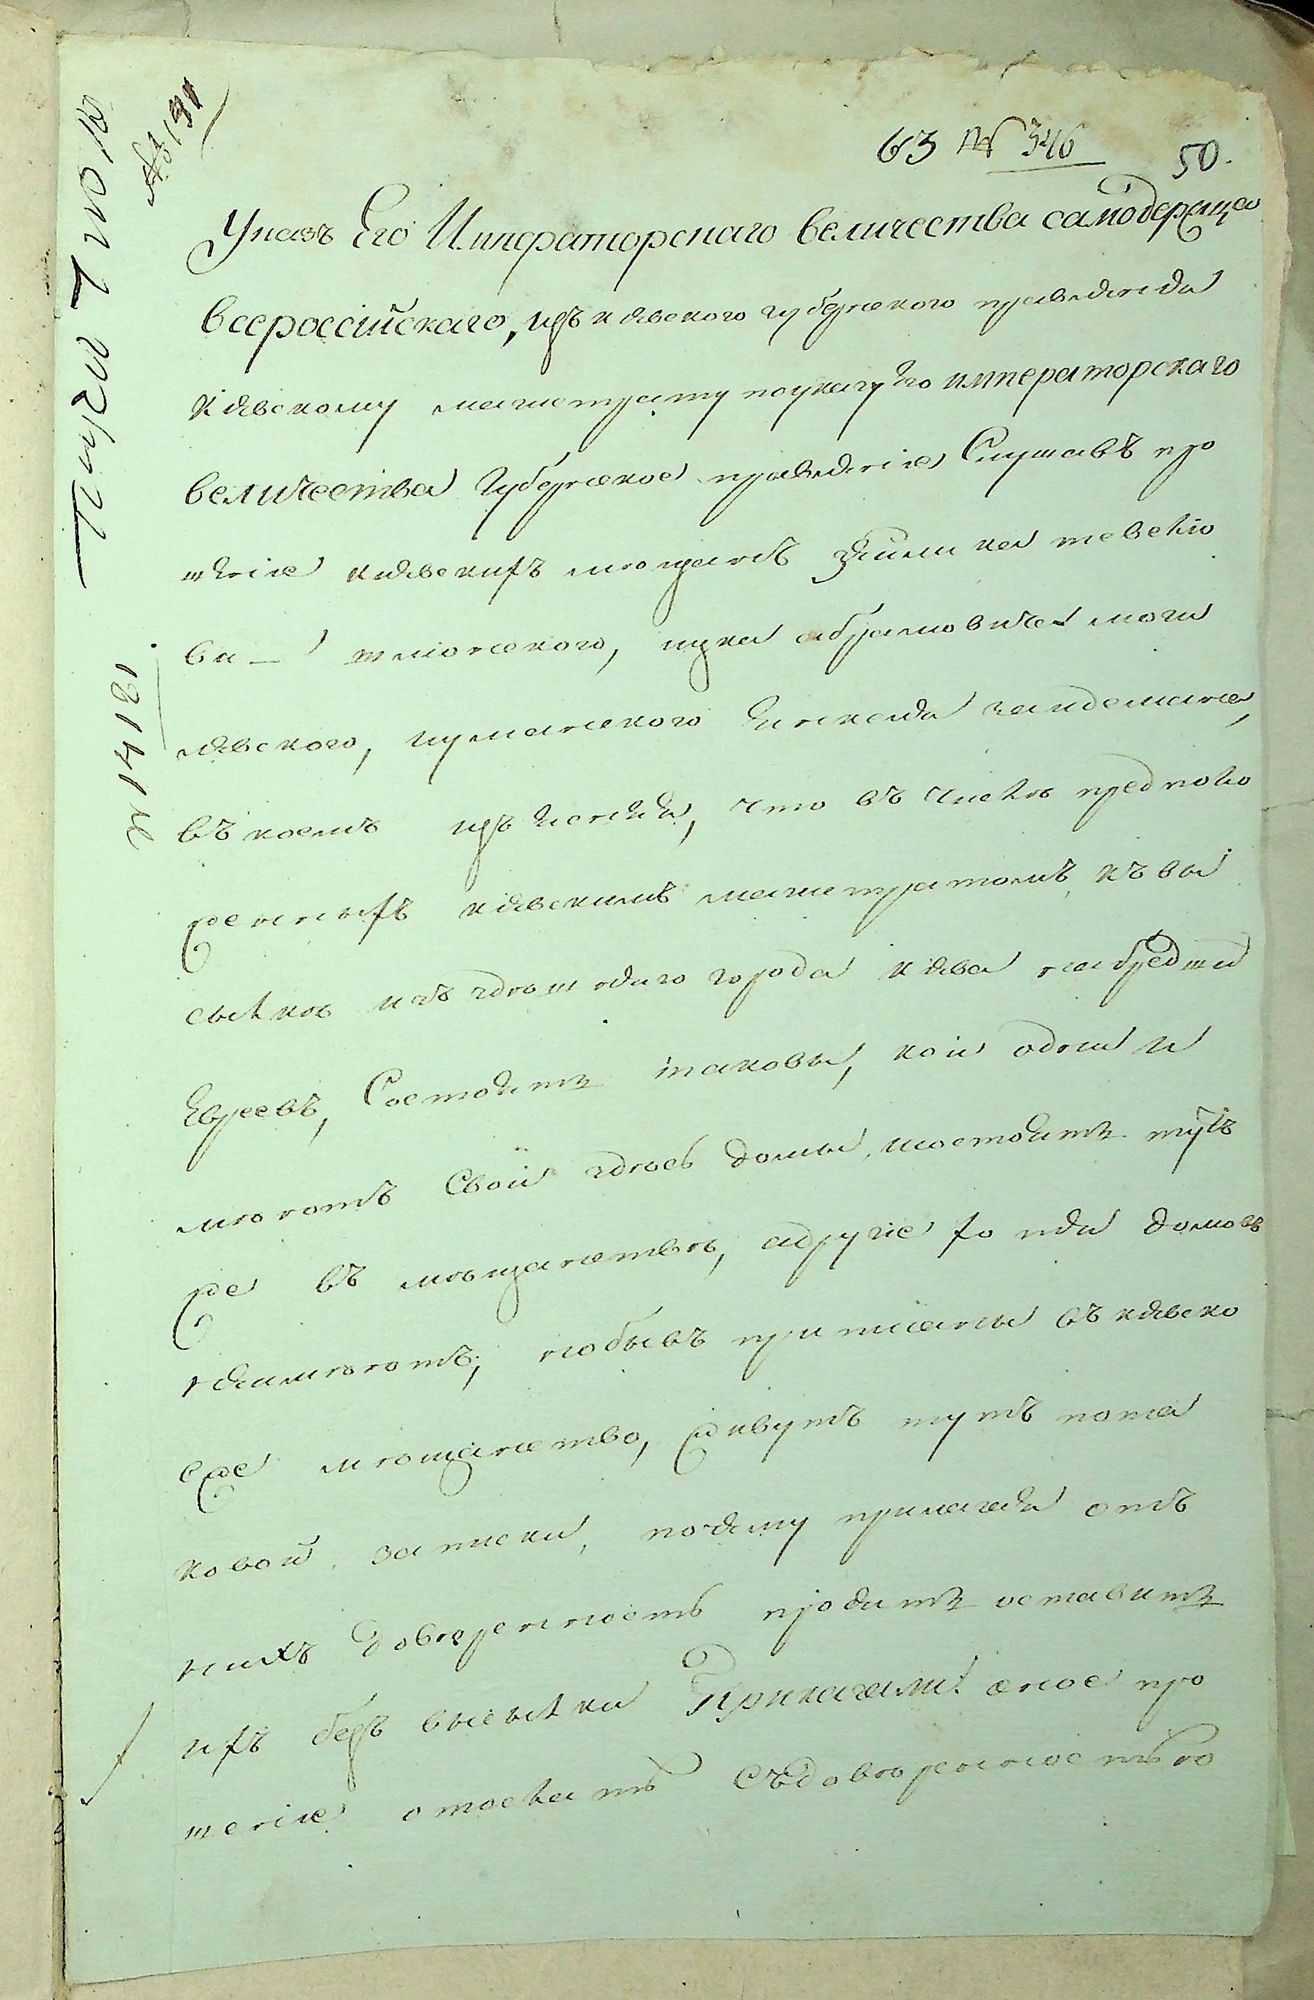 № 191
63 № 346
50.
Указъ Его Императорскаго величества самодержца
всероссійскаго, изъ киевского губернского правления
Киевскому магистрату по указу Его императорскаго
величества Губернское правление Слушавъ про
шение киевскихъ мещанъ
ва
левского, уманского
въ коемъ изъяснили, что въ числе предполо
женныхъ киевскимъ магистратомъ къ вы
сылке изъ здешнего города Киева набредши
Евреевъ, Состоятъ таковы, кои одни и
меютъ Свои здесь домы, и состоятъ тутъ
же въ мещанстве, а другие хотя домовъ
неимеютъ, но бывъ приписаны въ киевско
еже мещанство, живутъ тутъ по та
ковой записки, почему прилагая отъ
нихъ доверенность просятъ оставить
ихъ безъ высылки Приказали: оное про
шение отослать Съ доверенностью
№ 14181